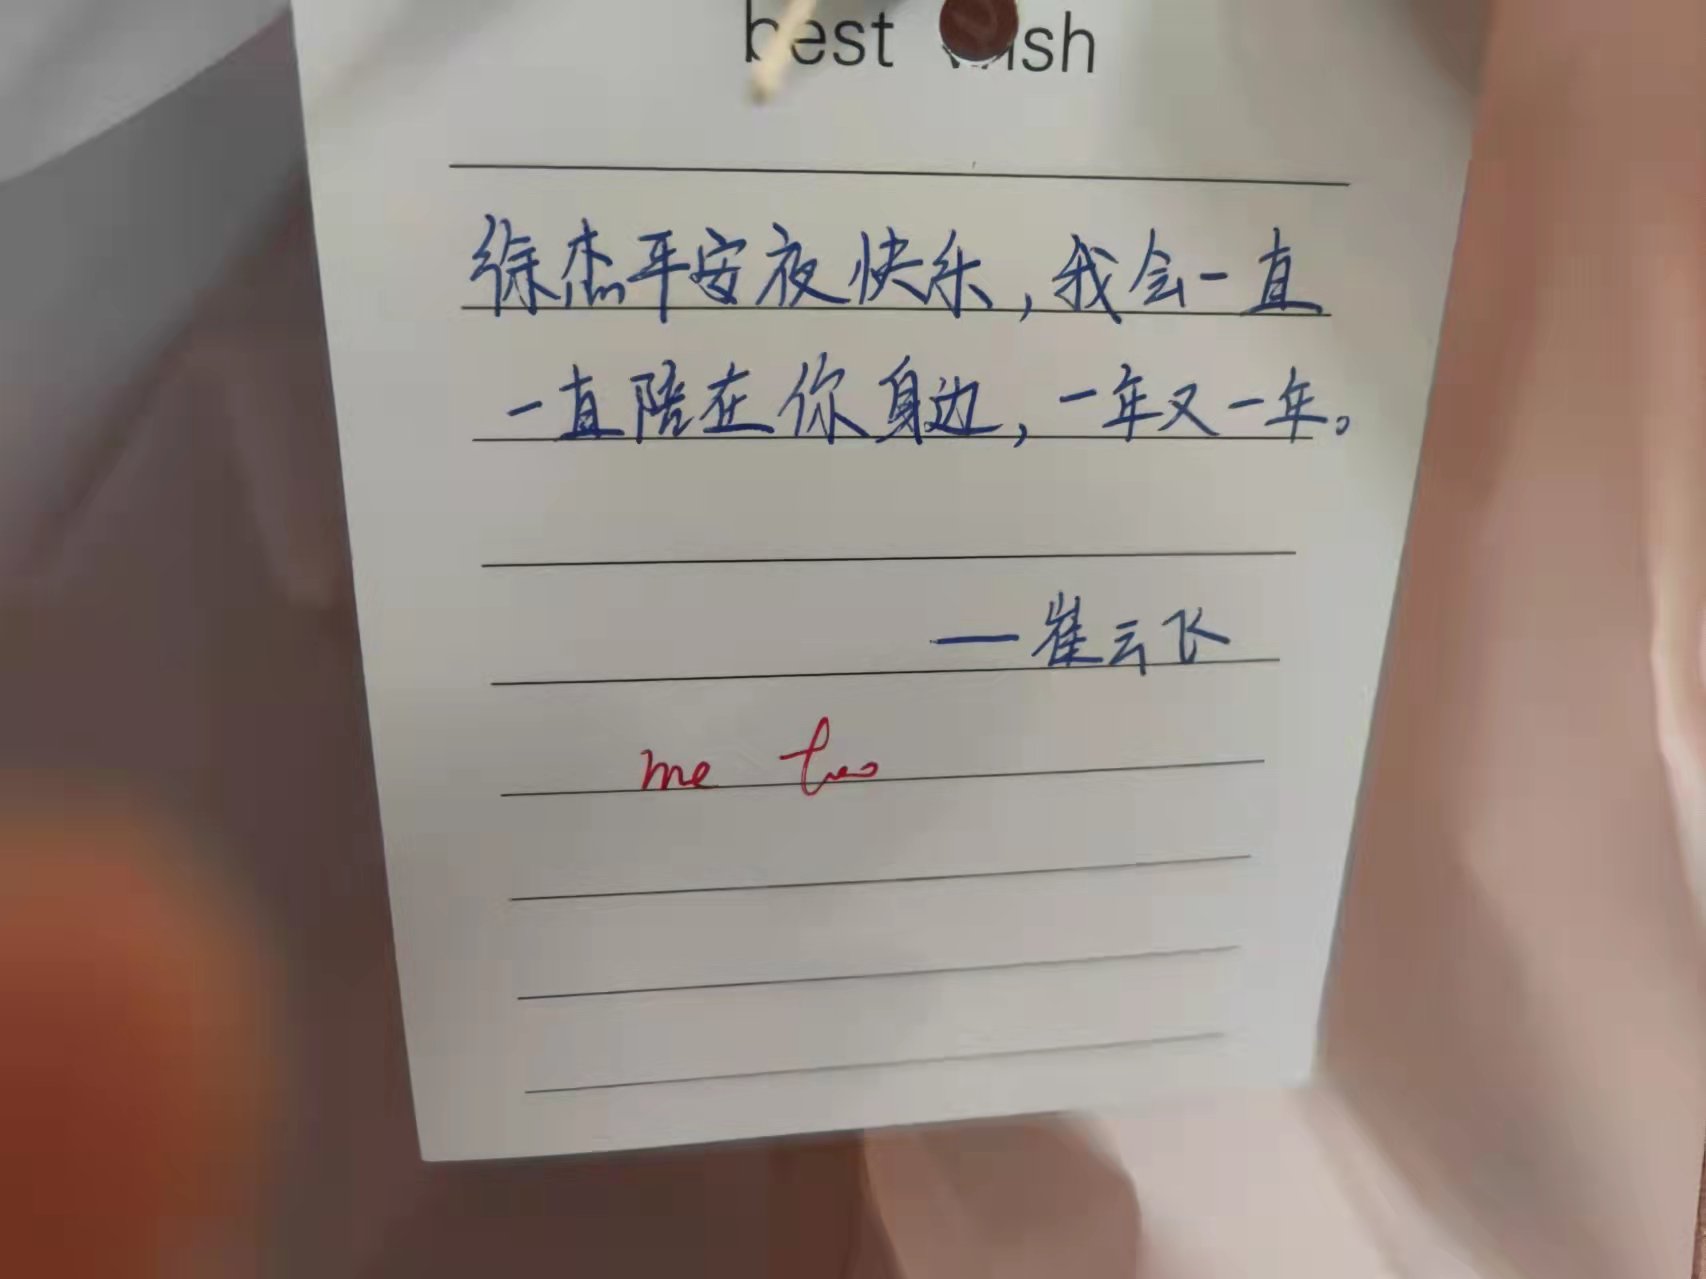 best wish
徐杰平安夜快乐,我会一直
一直陪在你身边,一年又一年。
——崔云飞
me too